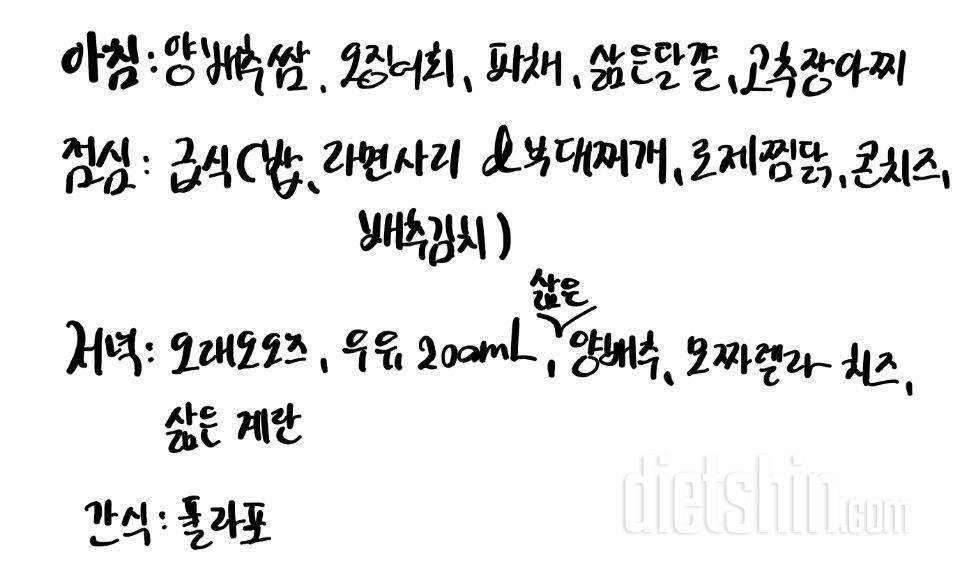 아침: 양배추쌈, 오징어회, 파채, 삶은달걀, 고추장아찌
점심: 급식(밥, 라면사리 & 부대찌개, 로제찜닭, 콘치즈,
배추김치)
삶은
저녁: 오레오오즈, 우유 200mL, 양배추, 모짜렐라 치즈,
삶은 계란
간식: 폴라포
dietshin.com